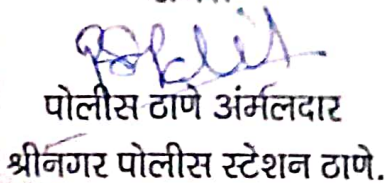 पोलीस ठाणे अंर्मलदार
श्रीनगर पोलीस स्टेशन ठाणे.